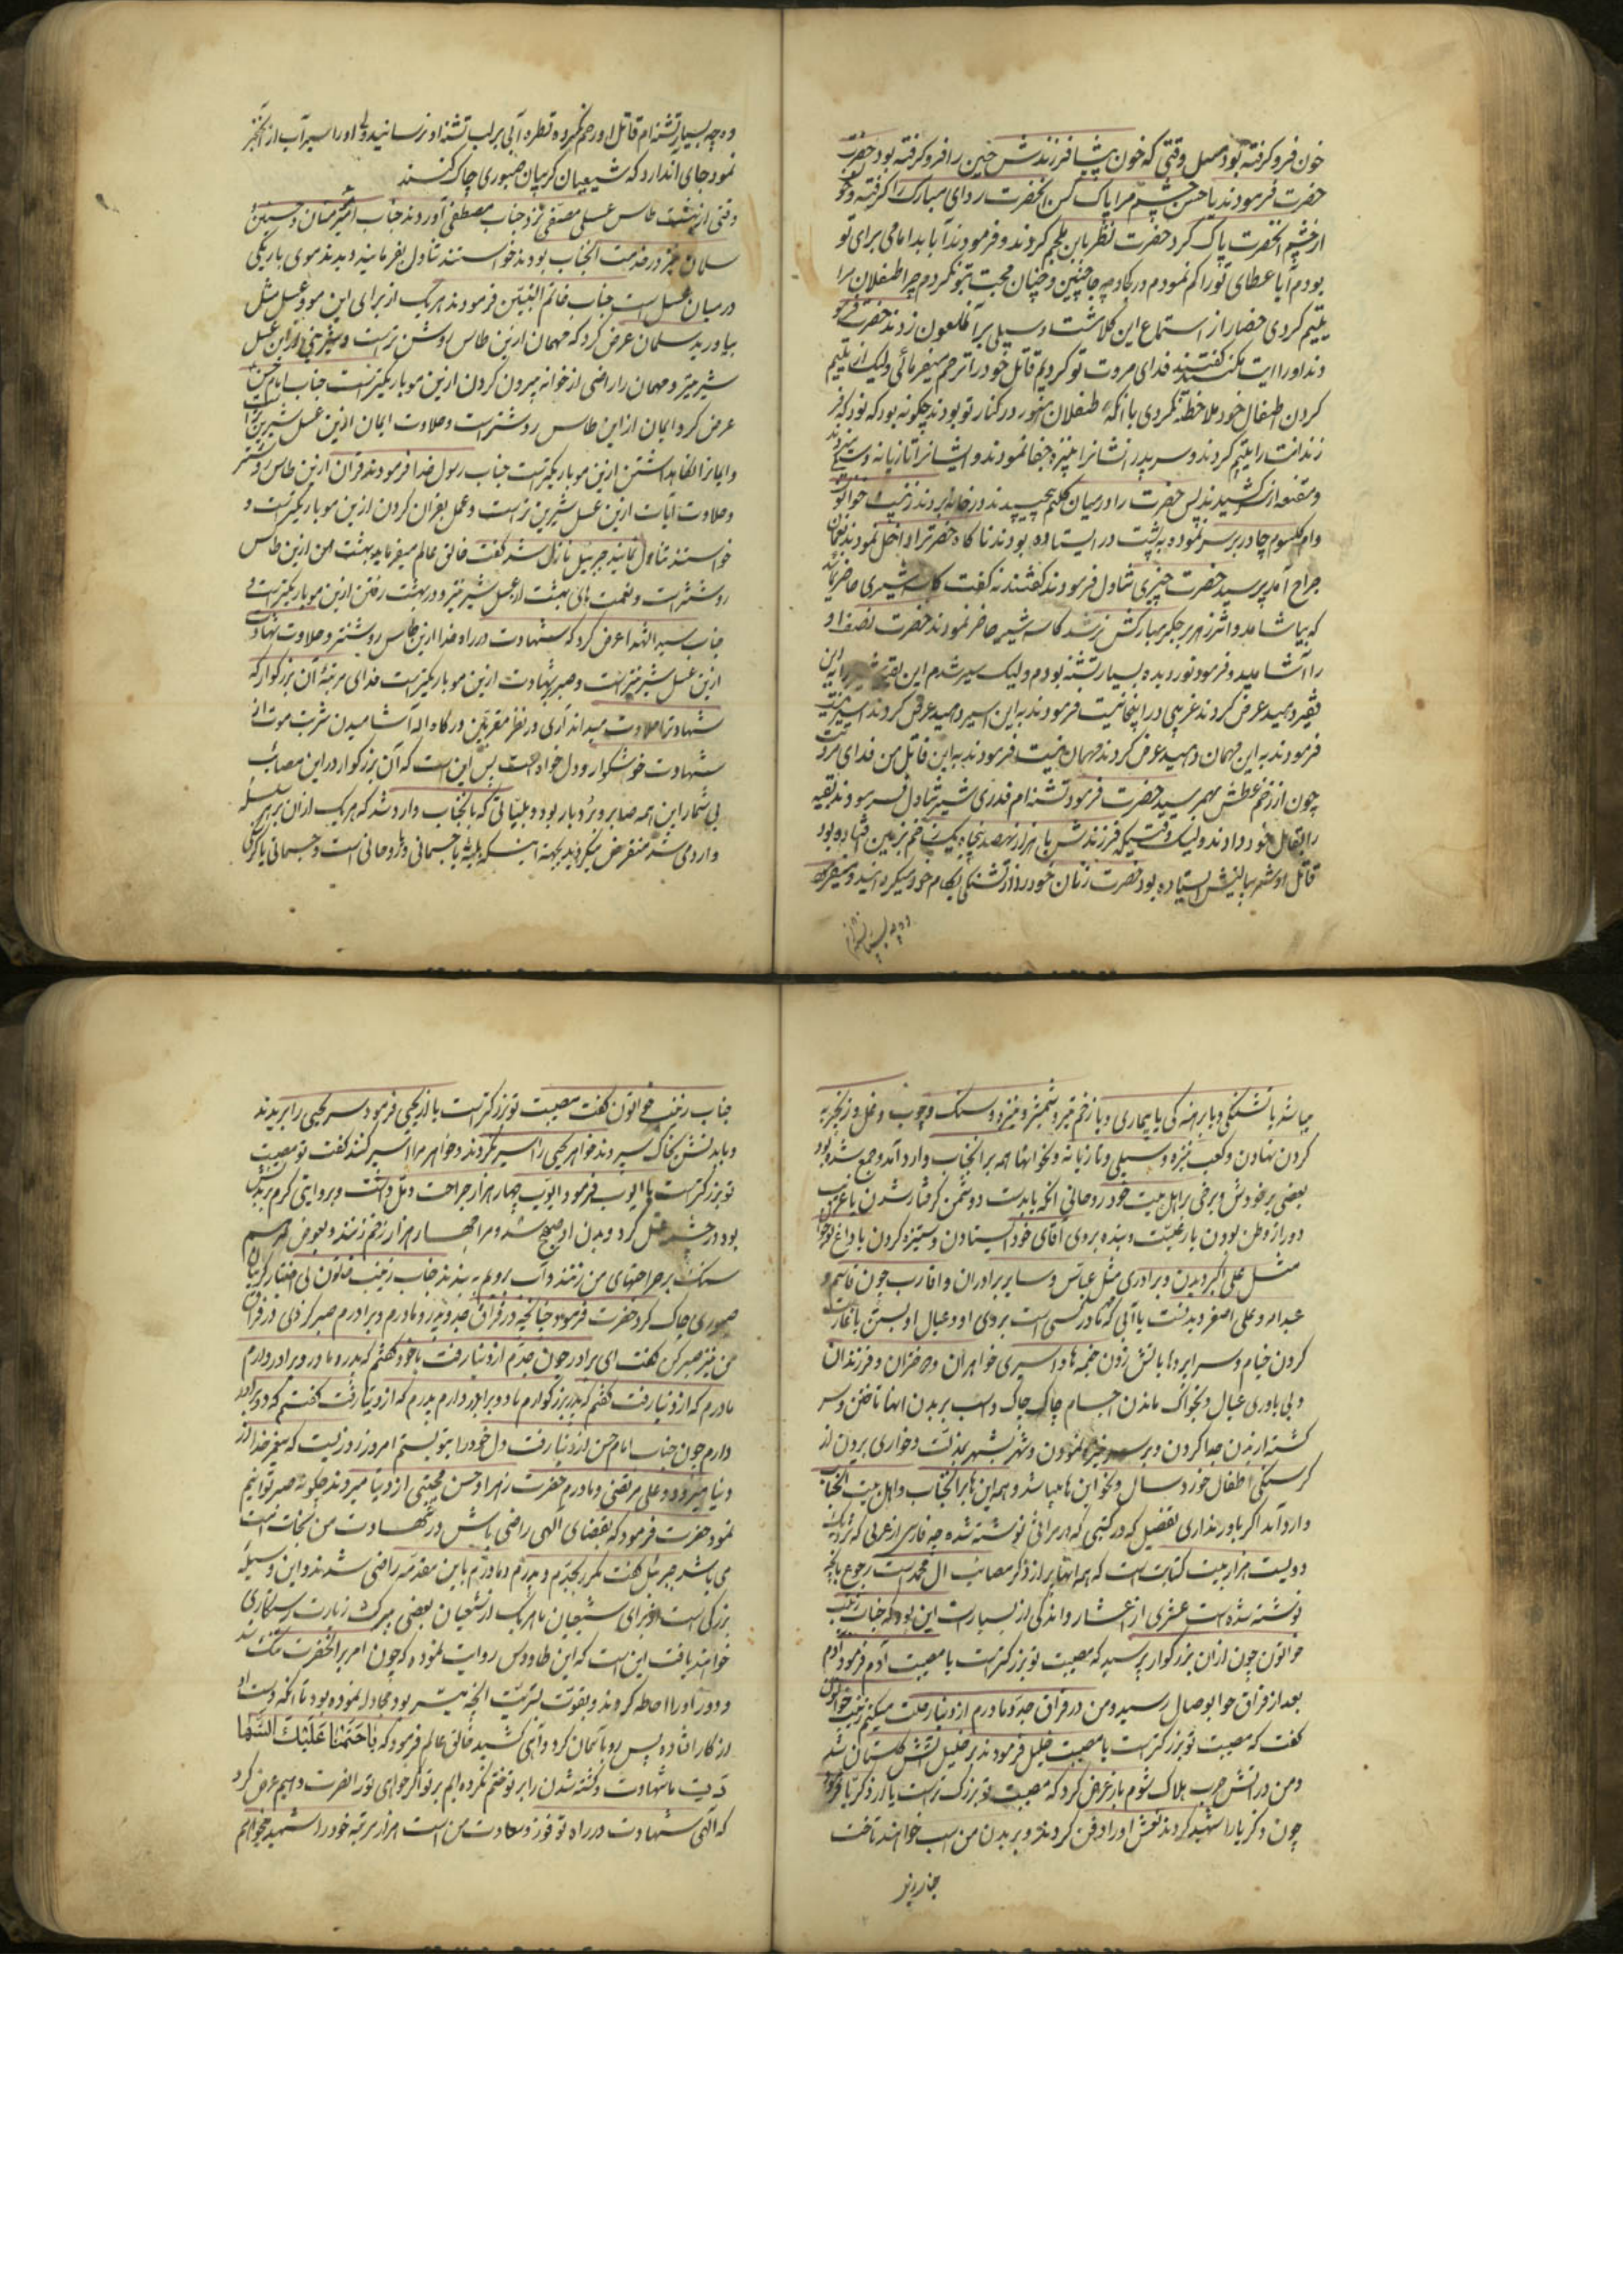 خون فرو کرفته بود مثل وقتی که خون پیشا فرزندش حسین را فرو کرفته بود حضرت
حضرت فرمودند یا حسن چشم مرا پاک کن انحضرت ردای مبارک را کرفته و خون
از چشم انحضرت پاک کرد حضرت نظر بابن ملجم کردند و فرمودند آیا بد امامی برای تو
بودم آیا عطای تو را کم نمودم در کجا و چه جا چنین و چنان محبت بتو نکردم چرا طفلان مرا
یتیم کردی حضار از استماع این کلا مشت و سیلی بر آنملعون زدند حضرت فرمو
دند او را اذیت مکنید کفتند فدای مروت تو کردیم قاتل خود را ترحم میفرمائی ولیک از یتیم
کردن اطفال خود ملاحظه نکردی با انکه طفلان در کنار تو بودند چکونه بود که
و مقنعه از سر کشیدند پس حضرت را در میان کلیم پیچیدند در خانه بردند زینب خواتون
و ام کلثوم چادر بر سر نموده به پشت در ایستاده بودند ناکاه حضرت را داخل نمودند نعمان
جراح آمد پرسید حضرت چیزی تناول فرمودند کفتند نه کفت کاسه شیری حاضر نمائید
که بیاشامد و اثر زهر بجکر مبارکش نرسد کاسه شیر حاضر نمودند حضرت نصف او
را آشامید و فرمود نور دیده بسیار تشنه بودم ولیک سیر شدم این بقیه شیر را باین
فقیر دهید عرض کردند غریبی در اینجا نیست فرمودند به این اسیر دهید عرض کردند اسیر نیست
فرمودند به این مهمان دهید عرض کردند مهمان نیست فرمودند به این قاتل من فدای مروت
چون از زخم عطش بهم رسید حضرت فرمود تشنه ام قدری شیر تناول فرمودند بقیه
را بقاتل خود دادند ولیک وقتیکه فرزندش با هزار نهصد پنجاه یک زخم بزمین افتاده بود
قاتل او شمر ببالینش ایستاده بود حضرت زبان خود را از تشنکی بکام خود میکردانید و میفرمود
وه چه بسیار تشنه ام
وه چه بسیار تشنه ام قاتل او رحم نکرده قطره آبی بر لب تشنه او نرسانید ولی او را سیر آب از خنجر
نمود جای ان دارد که شیعیان کریبان صبوری چاک کنند
وقتی از بهشت طاس عسل مصفی نزد جناب مصطفی آوردند جناب امیر مؤمنان و حسنین و
سلمان نیز در خدمت انجناب بودند خواستند تناول بفرمایند دیدند موی باریکی
در میان عسل است جناب خاتم النبیین فرمودند هر یک از برای این مو و عسل مثل
بیاورید سلمان عرض کرد که مهمان ازین طاس روشن تر است و از این عسل
شیرینتر و مهمان را راضی از خوانه بیرون کردن ازین مو باریکتر است جناب امام حسن
عرض کرد ایمان از این طاس روشنتر است و حلاوت ایمان ازین عسل شیرین تر است
و ایمانرا نکاهداشتن ازین مو باریکتر است جناب رسول خدا فرمودند قران ازین طاس روشنتر
و حلاوت آیات ازین عسل شیرین تر است و عمل بقران کردن ازین مو باریکتر است و
خواستند تناول نمایند جبرئیل نازل شد کفت خالق عالم میفرماید بهشت من ازین طاس
روشنتر است و نعمت های بهشت از عسل شیرینتر و در بهشت رفتن ازین مو باریکتر است
جناب سید الشهدا عرض کرد که شهادت در راه خدا ازین طاس روشنتر و حلاوت شهادت
ازین عسل شیرینتر است و صبر بشهادت ازین مو باریکتر است فدای مرتبه آن بزرکوار که
شهادترا حلاوت میداند آری در نظر مقربین درکاه اله آشامیدن شربت موت از
شهادت خوشکوار و دل خواه است بس این است که آن بزرکوار در این مصائب
بی شمار این همه صابر و بردبار بود و بلیاتی که بانجناب وارد شد که هر یک از ان بر هر
وارد می شد منقرض میکردید بجهة اینکه بلیه یا جسمانی و یا روحانی است و جسمانی یا کرسنکی
میباشد یا تشنکی و یا برهنه کی یا بیماری و یا زخم تیر و شمشیر و نیزه و سنک و چوب و غل و زنجیر
کردن نهادن و کعب نیزه و سیلی و تازیانه و نحو انها همه بر انجناب وارد آمد و جمع شده بود
بعضی بر خودش و برخی بر اهل بیت خود روحانی انکه یا بدست دوشمن کرفتار شدن یا غریب
دور از وطن بودن یا رعیت و بنده بروی آقای خود ایستادن و ستیزه کردن یا داغ
مثل علی اکبر دیدن و برادری مثل عباس و سایر برادران و اقارب چون قاسم و
عبداله و علی اصغر و بستن یا آبی که بروی او و عیال او بستن یا غارت
کردن خیام و سرا پرده یا بآتش زدن خیمه ها و اسیری خواهران و دختران و فرزندان
و بی یاوری عیال و بخواک ماندن اجسام چاک چاک و اسب بر بدن انها تاختن و سر
کشته از بدن جدا کردن و بر سر نیزه نمودن و شهر بشهر بمذلت و خواری بردن از
کرسنکی اطفال خورد سال و نحو این ها میباشد و همه این ها بر انجناب و اهل بیت انجناب
وارد آمد اکر باور نداری تفصیل که در کتبی که در مراثی نوشته شده چه فارسی از عربی که نزدیک
دویست هزار بیت کتابت است که همه انها پر از ذکر مصائب ال محمد است رجوع بانچه
نوشته شده است عشری از اعشار و اندکی از بسیار است این بود که جناب زینب
خواتون چون از ان بزرکوار پرسید که مصیبت تو بزرکتر است یا مصیبت آدم فرمود آدم
بعد از فراق حوا بوصال رسید و من در فراق جد و مادرم از دنیا رحلت میکنم زینب خواتون
کفت که مصیبت تو بزرکتر است یا مصیبت خلیل فرمودند بر خلیل آتش کلستان شد
و من در آتش حرب هلاک شوم باز عرض کرد که مصیبت تو بزرک تر است یا از ذکریا فرمود
چون ذکریا را شهید کردند نعش او را دفن کردند و بر بدن من اسب خواهند تاخت
جناب زینب
جناب زینب خواتون کفت مصیبت تو بزرکتر است یا از یحیی فرمود سر یحیی را بریدند
و با بدنش بخاک سپردند خواهر یحیی را اسیر نکردند و خواهر مرا اسیر کنند کفت تو مصیبت
تو بزرکتر است یا ایوب فرمود ایوب چهار هزار جراحت و دمل داشت و بروایتی کرم بدنش
بود در چشمه غسل کرد و بدن او صحیح شد و مرا چهار هزار زخم زنند و بعوض مرهم
سنک بر جراحتهای من زنند و آب برویم به بندند جناب زینب خاتون بی اختیار کریبان
صبوری چاک کرد حضرت فرمود چنانچه در فراق جد و پدر و مادرم و برادرم صبر کردی در فراق
من نیز صبر کن کفت ای برادر چون جدم از دنیا رفت با خود کفتم که پدر و مادر و برادر دارم
مادرم که از دنیا رفت کفتم که پدر بزرکوارم با دو برادر دارم پدرم که از دنیا رفت کفتم که دو برادر
دارم چون جناب امام حسن از دنیا رفت دل خود را بتو بستم امروز روزیست که پیغمبر خدا از
دنیا میرود و علی مرتضی و مادرم حضرت زهرا و حسن مجتبی از دنیا میروند چکونه صبر توانیم
نمود حضرت فرمود که بقضای الهی راضی باش در شهادت من نجات امت
می باشد جبرئیل کفت مکرر بجدم و پدرم و مادرم باین مقدمه راضی شدند و این وسیله
بزرکی است از برای شیعیان تا هر یک از شیعیان بعضی ببرکت زیارت رستکاری
خواهند یافت این است که ابن طاووس روایت نموده که چون امر بر انحضرت تنک شد
و دور او را احاطه کردند و بقوت بشریت انچه میسر بود مجادله نموده بود تا انکه دست او
از کار افتاده پس رو باسمان کرد و آهی کشید خالق عالم فرمود که ما حتمنا علیک الشها
دت ما شهادت و کشته شدن را بر تو ختم نکرده ایم بر تو اکر خواهی تو را نصرت دهیم عرض کرد
که الهی شهادت در راه تو فوز و سعادت من است هزار مرتبه خود را شهید خواهم